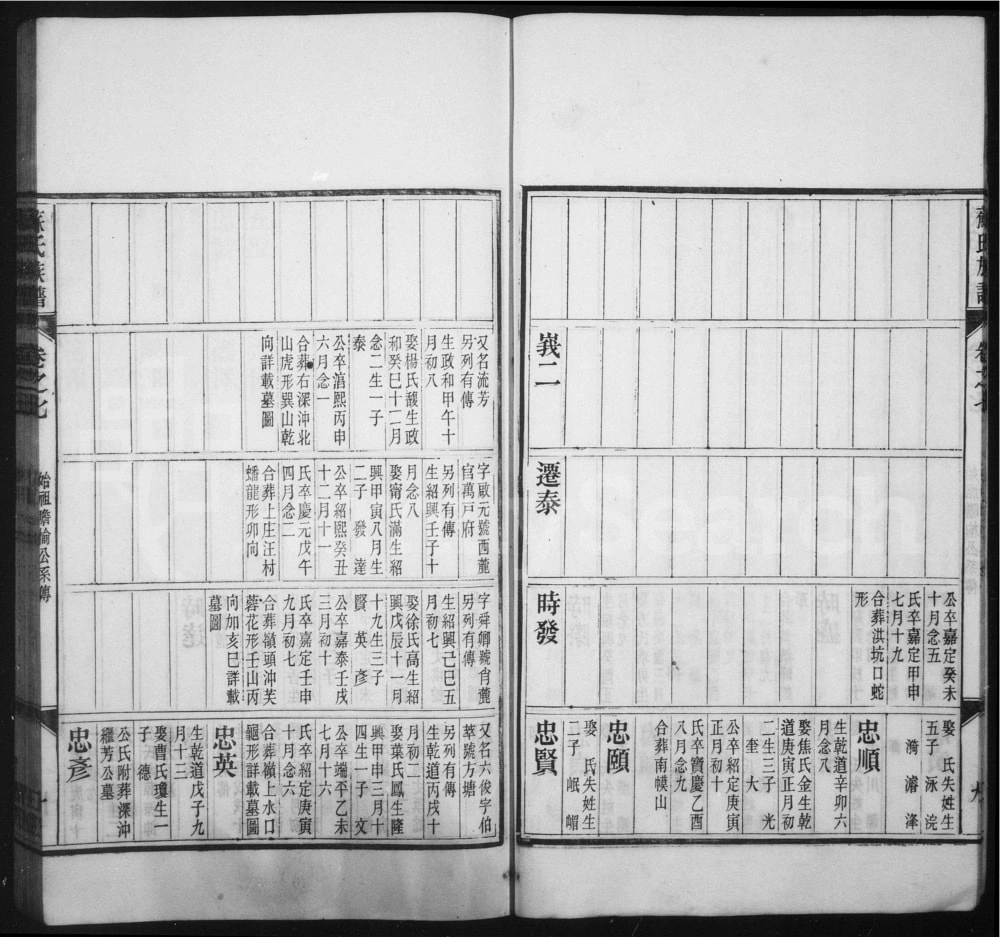 蘇氏族譜
卷之七
九
羲二
遷泰
公卒嘉定癸未
十月念五
氏卒嘉定甲申
七月十九
合葬洪坑口蛇
形
時發
娶　氏失姓生
五子　泳　浣
漪　濬　洚
忠順
生乾道辛卯六
月念八
娶焦氏金生乾
道庚寅正月初
二生三子　光
奎　大
公卒紹定庚寅
正月初十
氏卒寶慶乙酉
八月念九
合葬南幙山
忠頤
娶　氏失姓生
二子　岷　嵋
忠賢
又名流芳
另列有傳
生政和甲午十
月初八
娶楊氏馥生政
和癸巳十一月
念二生一子
泰
公卒淳熙丙申
六月念一
合葬右深沖北
山虎形巽山乾
向詳載墓圖
字啟元號西麓
官萬戶府
另列有傳
生紹興壬子十
月念八
娶甯氏滿生紹
興甲寅八月生
二子　發　達
公卒紹熙癸丑
十二月十一
氏卒慶元戊午
四月念二
合葬上庄汪村
蟠龍形卯向
字舜卿號肯麓
另列有傳
生紹興己巳五
月初七
娶徐氏高生紹
興戊辰十一月
十九生三子
賢　英　彥
公卒嘉泰壬戌
三月初十
氏卒嘉定壬申
九月初七
合葬嶺頭沖芙
蓉花形壬山丙
向加亥巳詳載
墓圖
又名六後字伯
萃號方塘
另列有傳
生乾道丙戌十
月初二
娶葉氏鳳生隆
興甲申三月十
四生一子　文
公卒端平乙未
七月十六
氏卒紹定庚寅
十月念六
合葬嶺上水口
龜形詳載墓圖
忠英
生乾道戊子九
月十三
娶曹氏瓊生一
子　德
公氏附葬深沖
權芳公墓
忠彥
蘇氏族譜
卷之七
始祖瞻愉公系傳
十